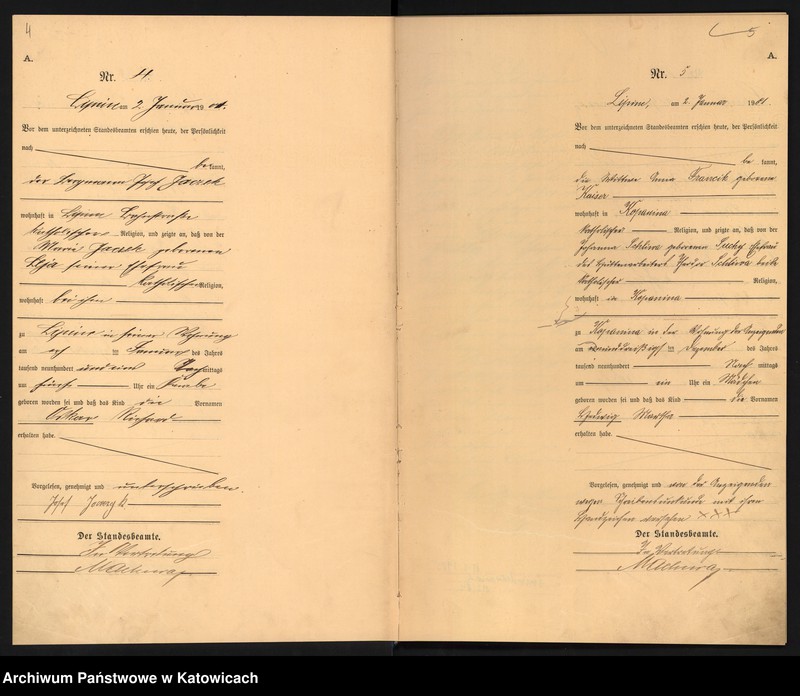 4
A.
Nr. 4.
Lipine am 2 Januar 1901.
Vor dem unterzeichneten Standesbeamten erschien heute, der Persönlichkeit
nach
be kannt,
der Bergmann Josef Jaczek
wohnhaft in Lipine
katholischer Religion, und zeigte an, daß von der
Marie Jaczek geborenen
seiner Ehefrau
katholischer Religion,
wohnhaft bei ihm
zu Lipine in seiner Wohnung
am ten Januar des Jahres
tausend neunhundert und ein mittags
um fünf Uhr ein Knabe
geboren worden sei und daß das Kind die Vornamen
Oskar Richard
erhalten habe.
Vorgelesen, genehmigt und unterschrieben.
Josef
Der Standesbeamte.
In Vertretung
5
A.
Nr. 5
Lipine, am 2. Januar 1901.
Vor dem unterzeichneten Standesbeamten erschien heute, der Persönlichkeit
nach
be kannt,
die Wittwe Anna Francik geborene
Kaiser
wohnhaft in Kopanina
katholischer Religion, und zeigte an, daß von der
Johanna geborenen Ehefrau
des Hüttenarbeiters Theodor beide
katholischer Religion,
wohnhaft in Kopanina
zu Kopanina in der Wohnung der Anzeigenden
am ten Dezember des Jahres
tausend neunhundert Nach mittags
um ein Uhr ein Mädchen
geboren worden sei und daß das Kind die Vornamen
Hedwig Martha
erhalten habe.
Vorgelesen, genehmigt und von der Anzeigenden
wegen Schreibensunkunde mit ihren
Handzeichen versehen XXX
Der Standesbeamte.
In Vertretung
Archiwum Państwowe w Katowicach